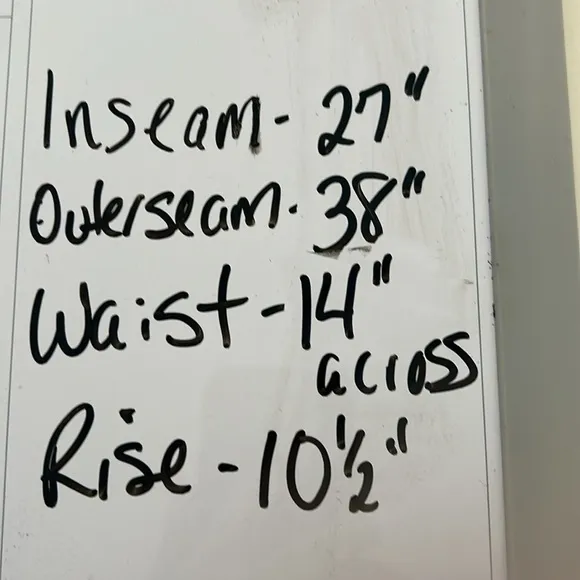 Inseam - 27"
Outerseam - 38"
Waist - 14"
across
Rise - 10 1/2"